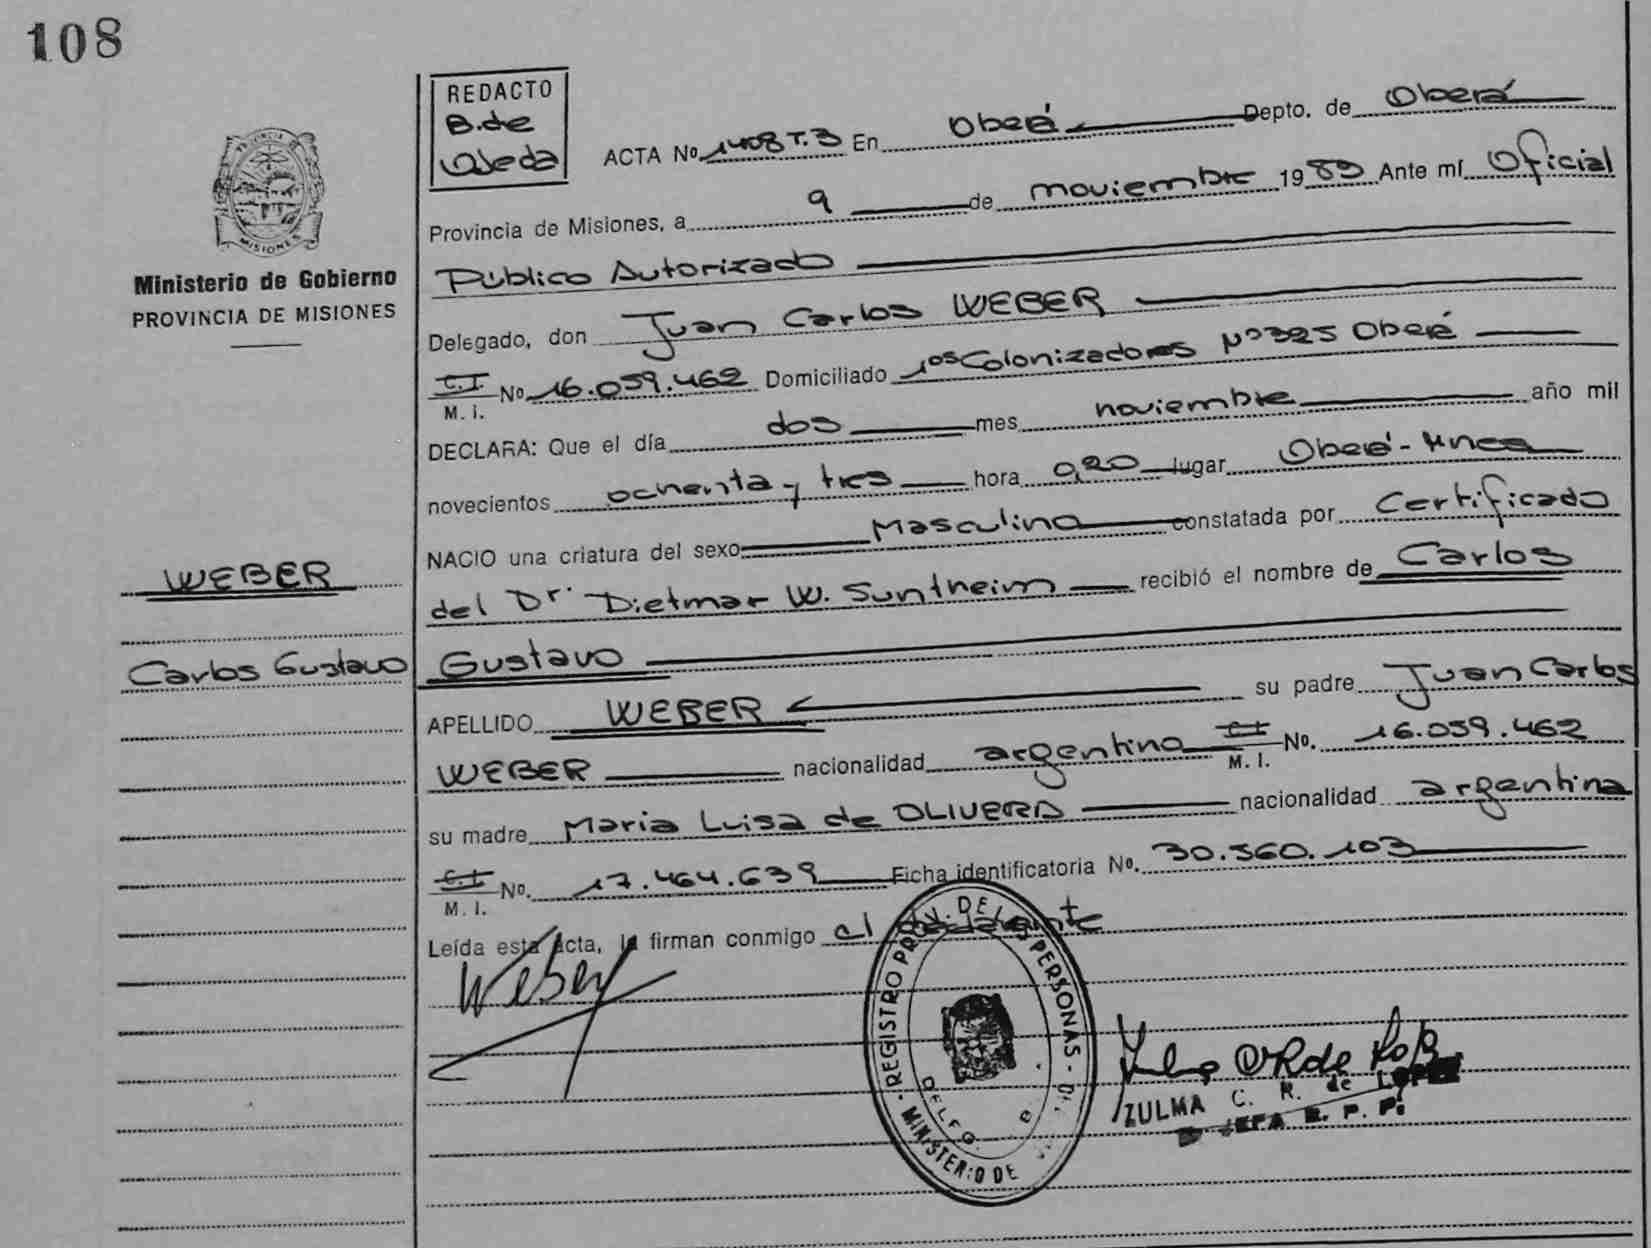 108
REDACTO
B. de
Ojeda
ACTA No 1408 T.3 En Oberá Depto. de Oberá
Provincia de Misiones, a 9 de noviembre 1983 Ante mí Oficial
Público Autorizado
PROVINCIA
MISIONES
Ministerio de Gobierno
PROVINCIA DE MISIONES
Delegado, don Juan Carlos WEBER
C.I.
M. I. No 16.059.462 Domiciliado 1os Colonizadores Nº 325 Oberá
DECLARA: Que el día dos mes noviembre año mil
novecientos ochenta y tres hora 0,20 lugar Oberá - Mnes
NACIO una criatura del sexo Masculino constatada por Certificado
del Dr. Dietmar W. Suntheim recibió el nombre de Carlos
Gustavo
WEBER
Carlos Gustavo
APELLIDO WEBER su padre Juan Carlos
WEBER nacionalidad argentina C.I. M. I. No. 16.059.462
su madre Maria Luisa de OLIVERA nacionalidad argentina
C.I. M. I. No. 17.464.639 Ficha identificatoria No. 30.560.103
Leída esta acta, la firman conmigo el
Weber
REGISTRO PROV. DE LAS PERSONAS
MINISTERIO DE
DELEG.
ZULMA C. R. de LOPEZ
JEFA R. P. P.